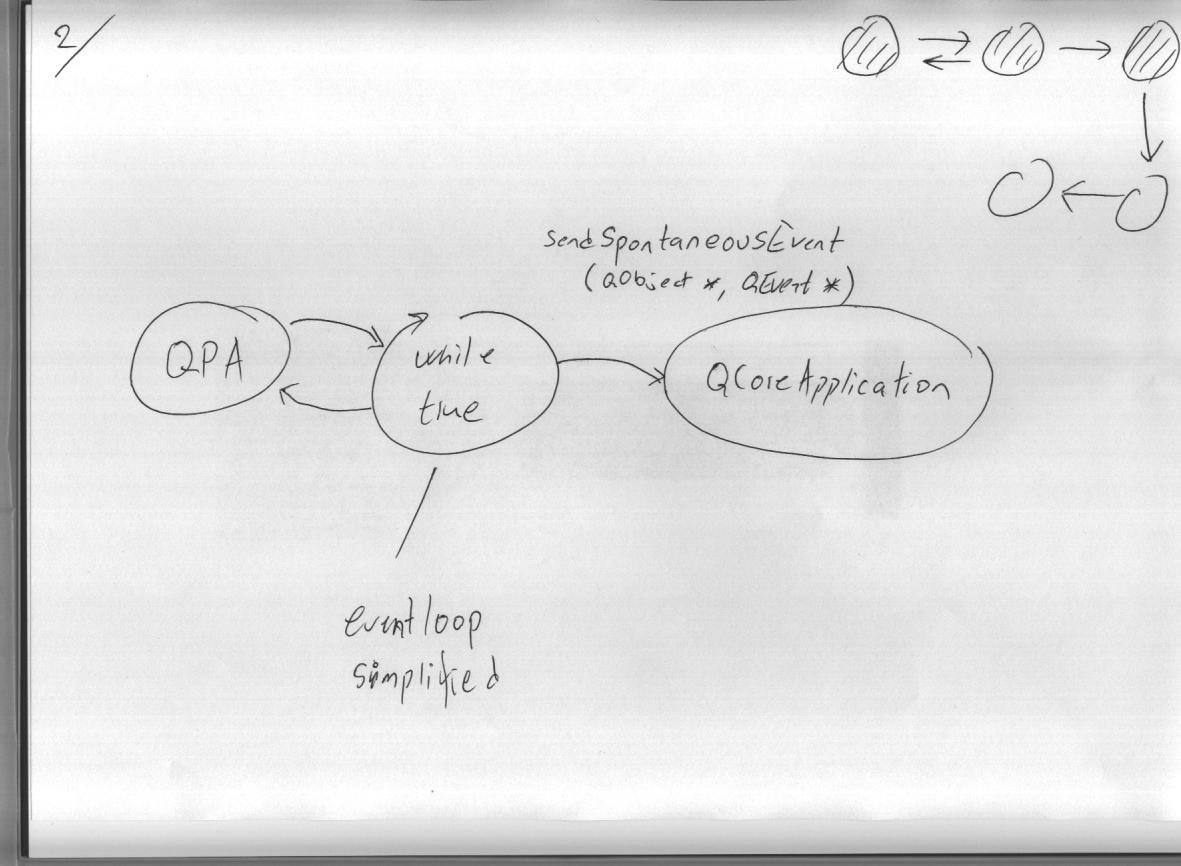 2/
sendSpontaneousEvent
(QObject *, QEvent *)
QPA
while
true
QCoreApplication
eventloop
simplified